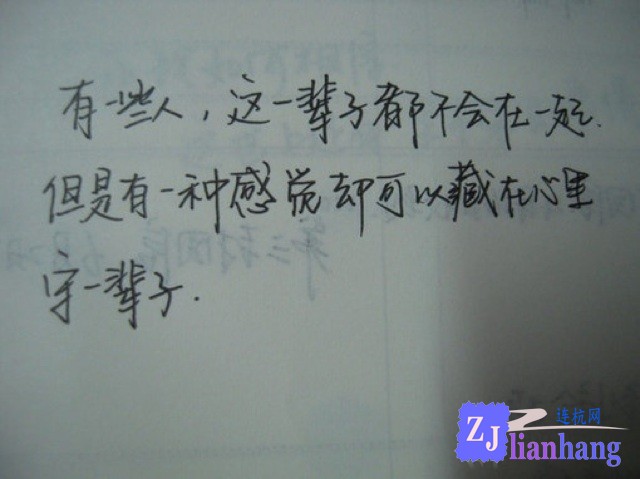 有一些人，这一辈子都不会在一起.
但是有一种感觉却可以藏在心里
守一辈子.
连杭网
ZJ lianhang